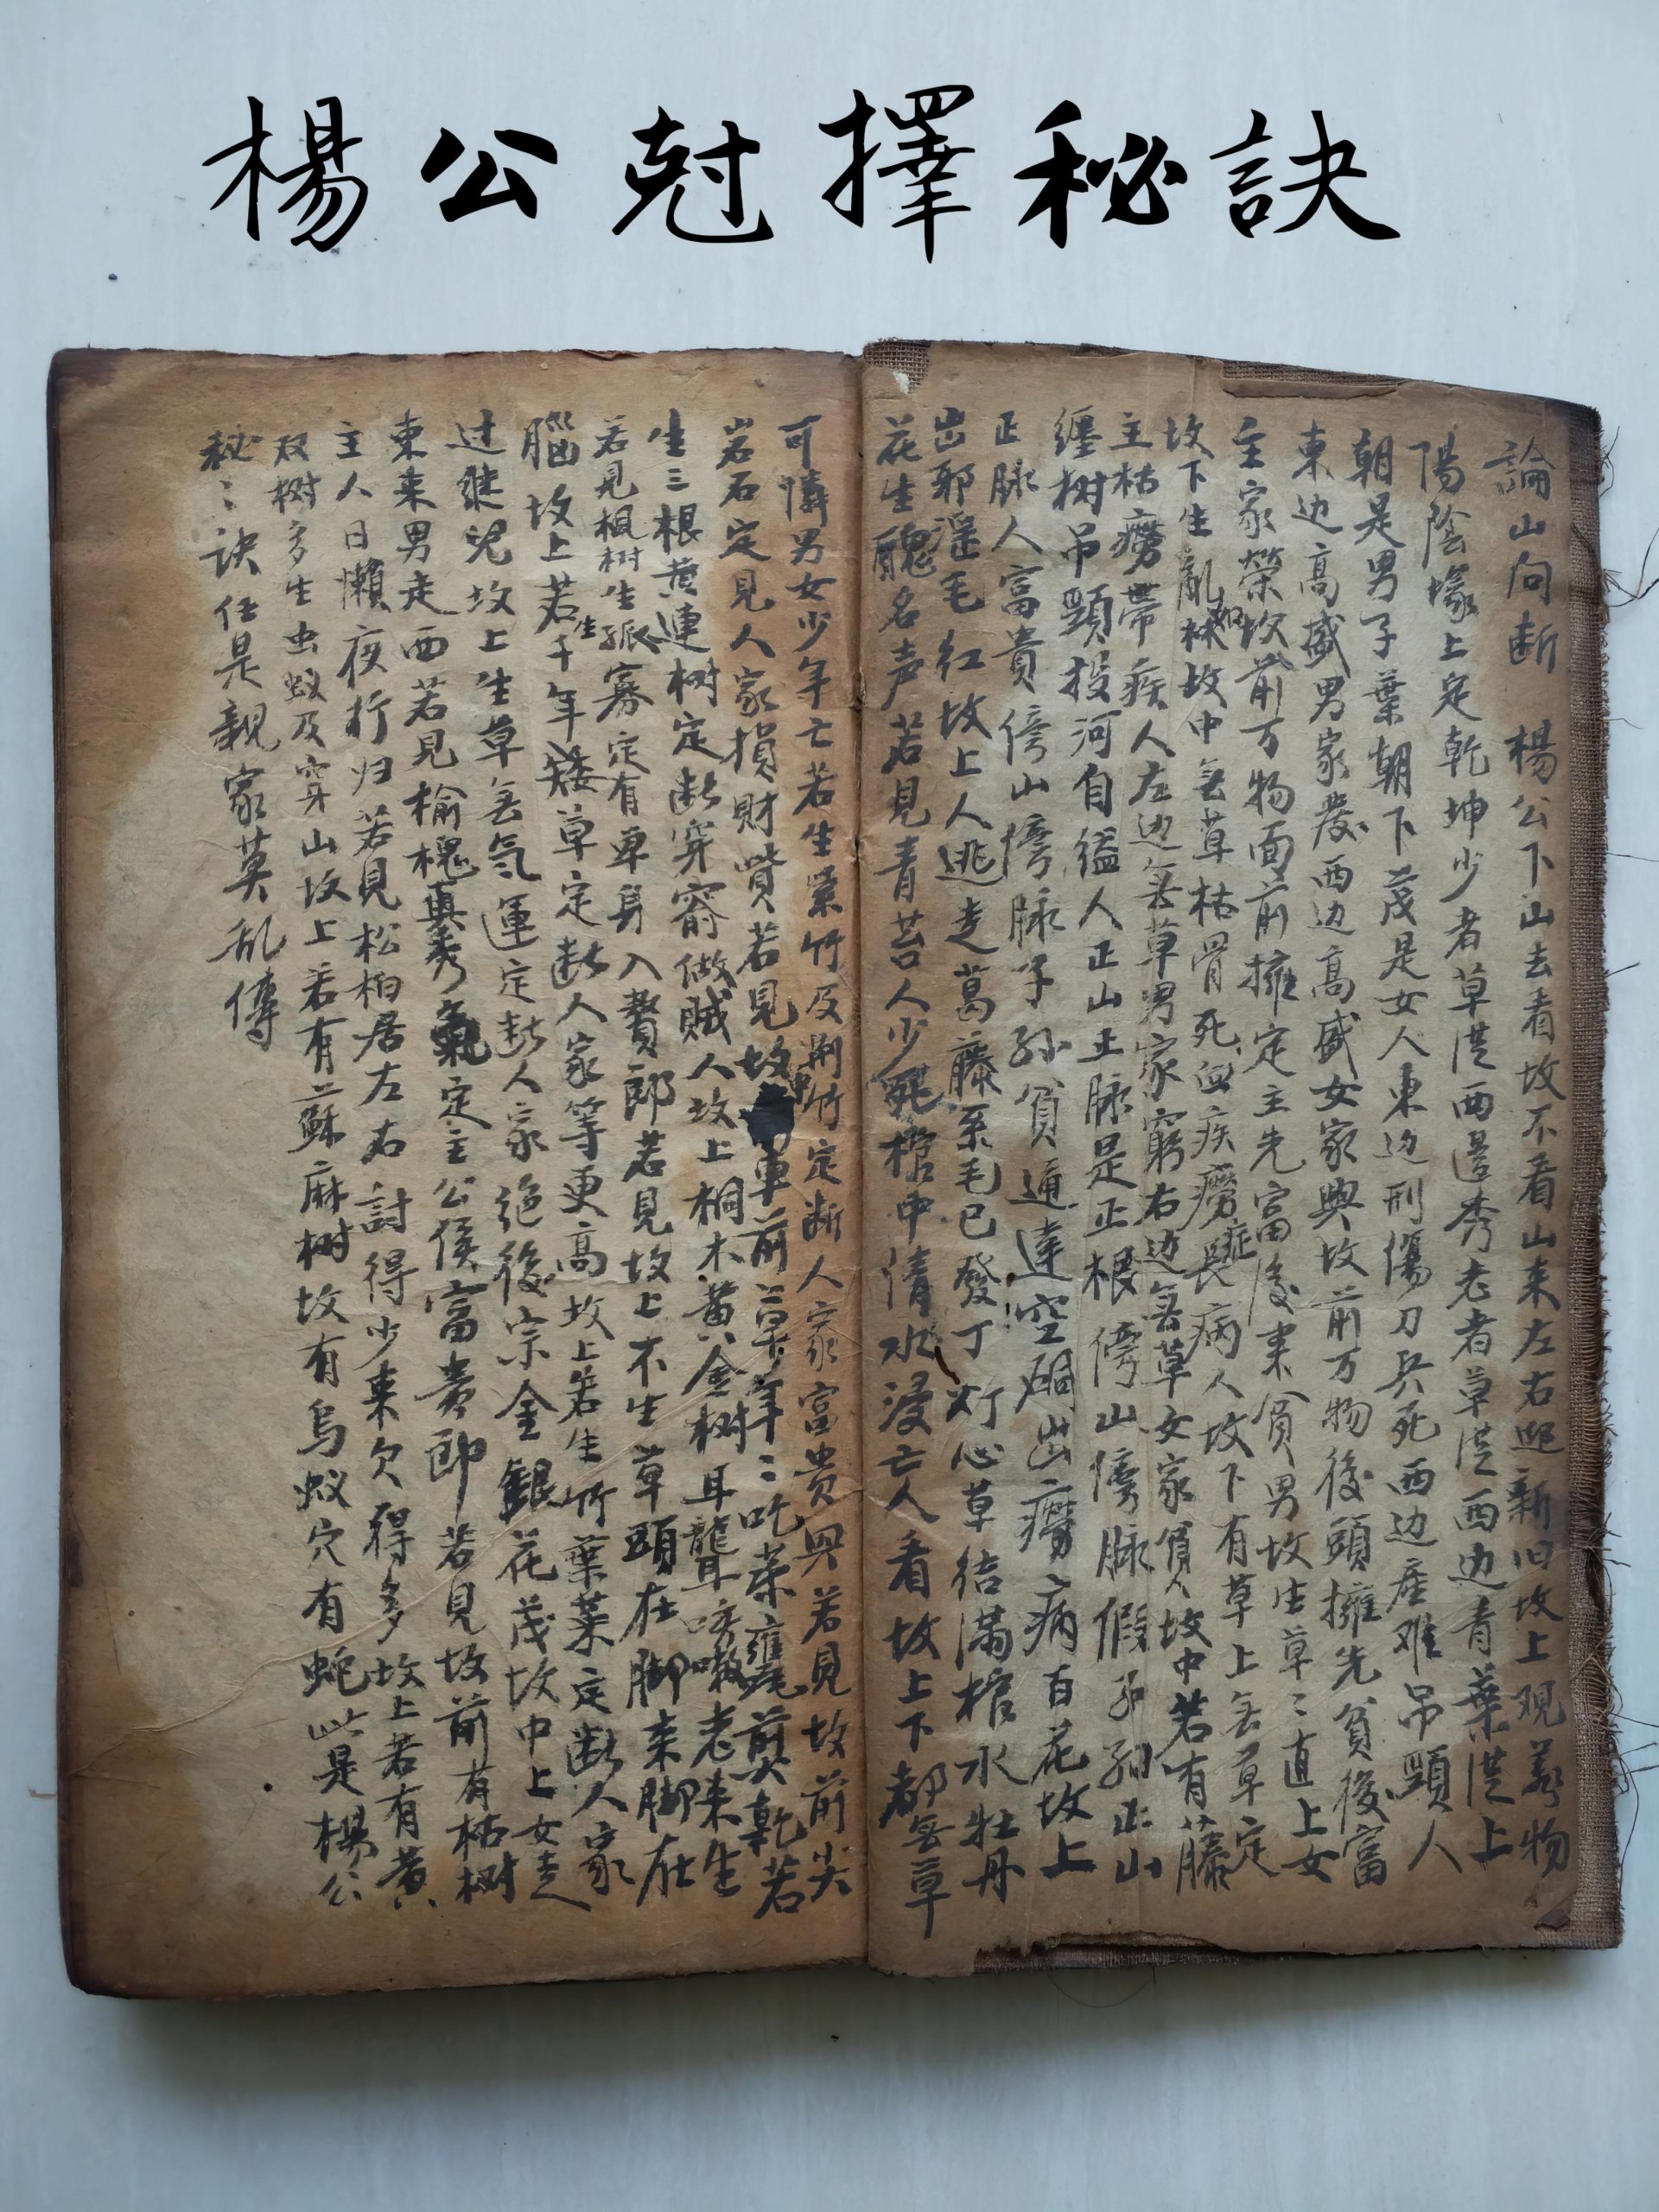 楊公尅擇秘訣
論山向断 楊公下山去看坟不看山来左右迎新旧坟上观万物
陽陰塚上定乾坤少者草淇西邉秀老者草淇西边青葉淇上
朝是男子葉朝下茂是女人東边刑傷刀兵死西边産难吊頸人
東边高盛男家發西边高盛女家興坟前万物後頭擁先貧後富
主家榮坟前万物面前擁定主先富後来貧男坟生草〻直上女
坟下生亂麻坟中無草枯骨死血疾癆症長病人坟下有草上無草定
主枯癆帶疾人左边無草男家窮右边無草女家貧坟中若有藤
纏树吊頸投河自縊人正山正脉是正根傍山傍脉假子孫正山
正脉人富貴傍山傍脉子孫貧通達空硐出癆病百花坟上
出邪淫毛红坟上人逃走葛藤系毛已發丁灯心草结满棺水牡丹
花生醜名声若見青苔人少死棺中清水浸亡人看坟上下都無草
可憐男女少年亡若生紫竹及荆竹定断人家富贵興若見坟前尖
岩石定見人家損財貲若見坟中草前草年〻吃菜癰葬乾若
生三根黄連树定断穿窬做贼人坟上桐木黄金树耳聾咳嗽老来生
若見楓树生孤寡定有单身入贅郎若見坟上不生草頭在脚来脚在
腦坟上若生千年矮草定断人家等更高坟上若生竹葉菜定断人家
过继兒坟上生草無气運定断人家绝後宗金銀花茂坟中上女走
東来男走西若見榆槐真秀氣定主公侯富貴郎若見坟前有枯树
主人日懒夜行归若見松柏居左右討得少来欠得多坟上若有黄
双树多生虫蚁及穿山坟上若有蘇麻树坟有烏蚁穴有蛇此是楊公
秘〻訣任是親家莫乱傳